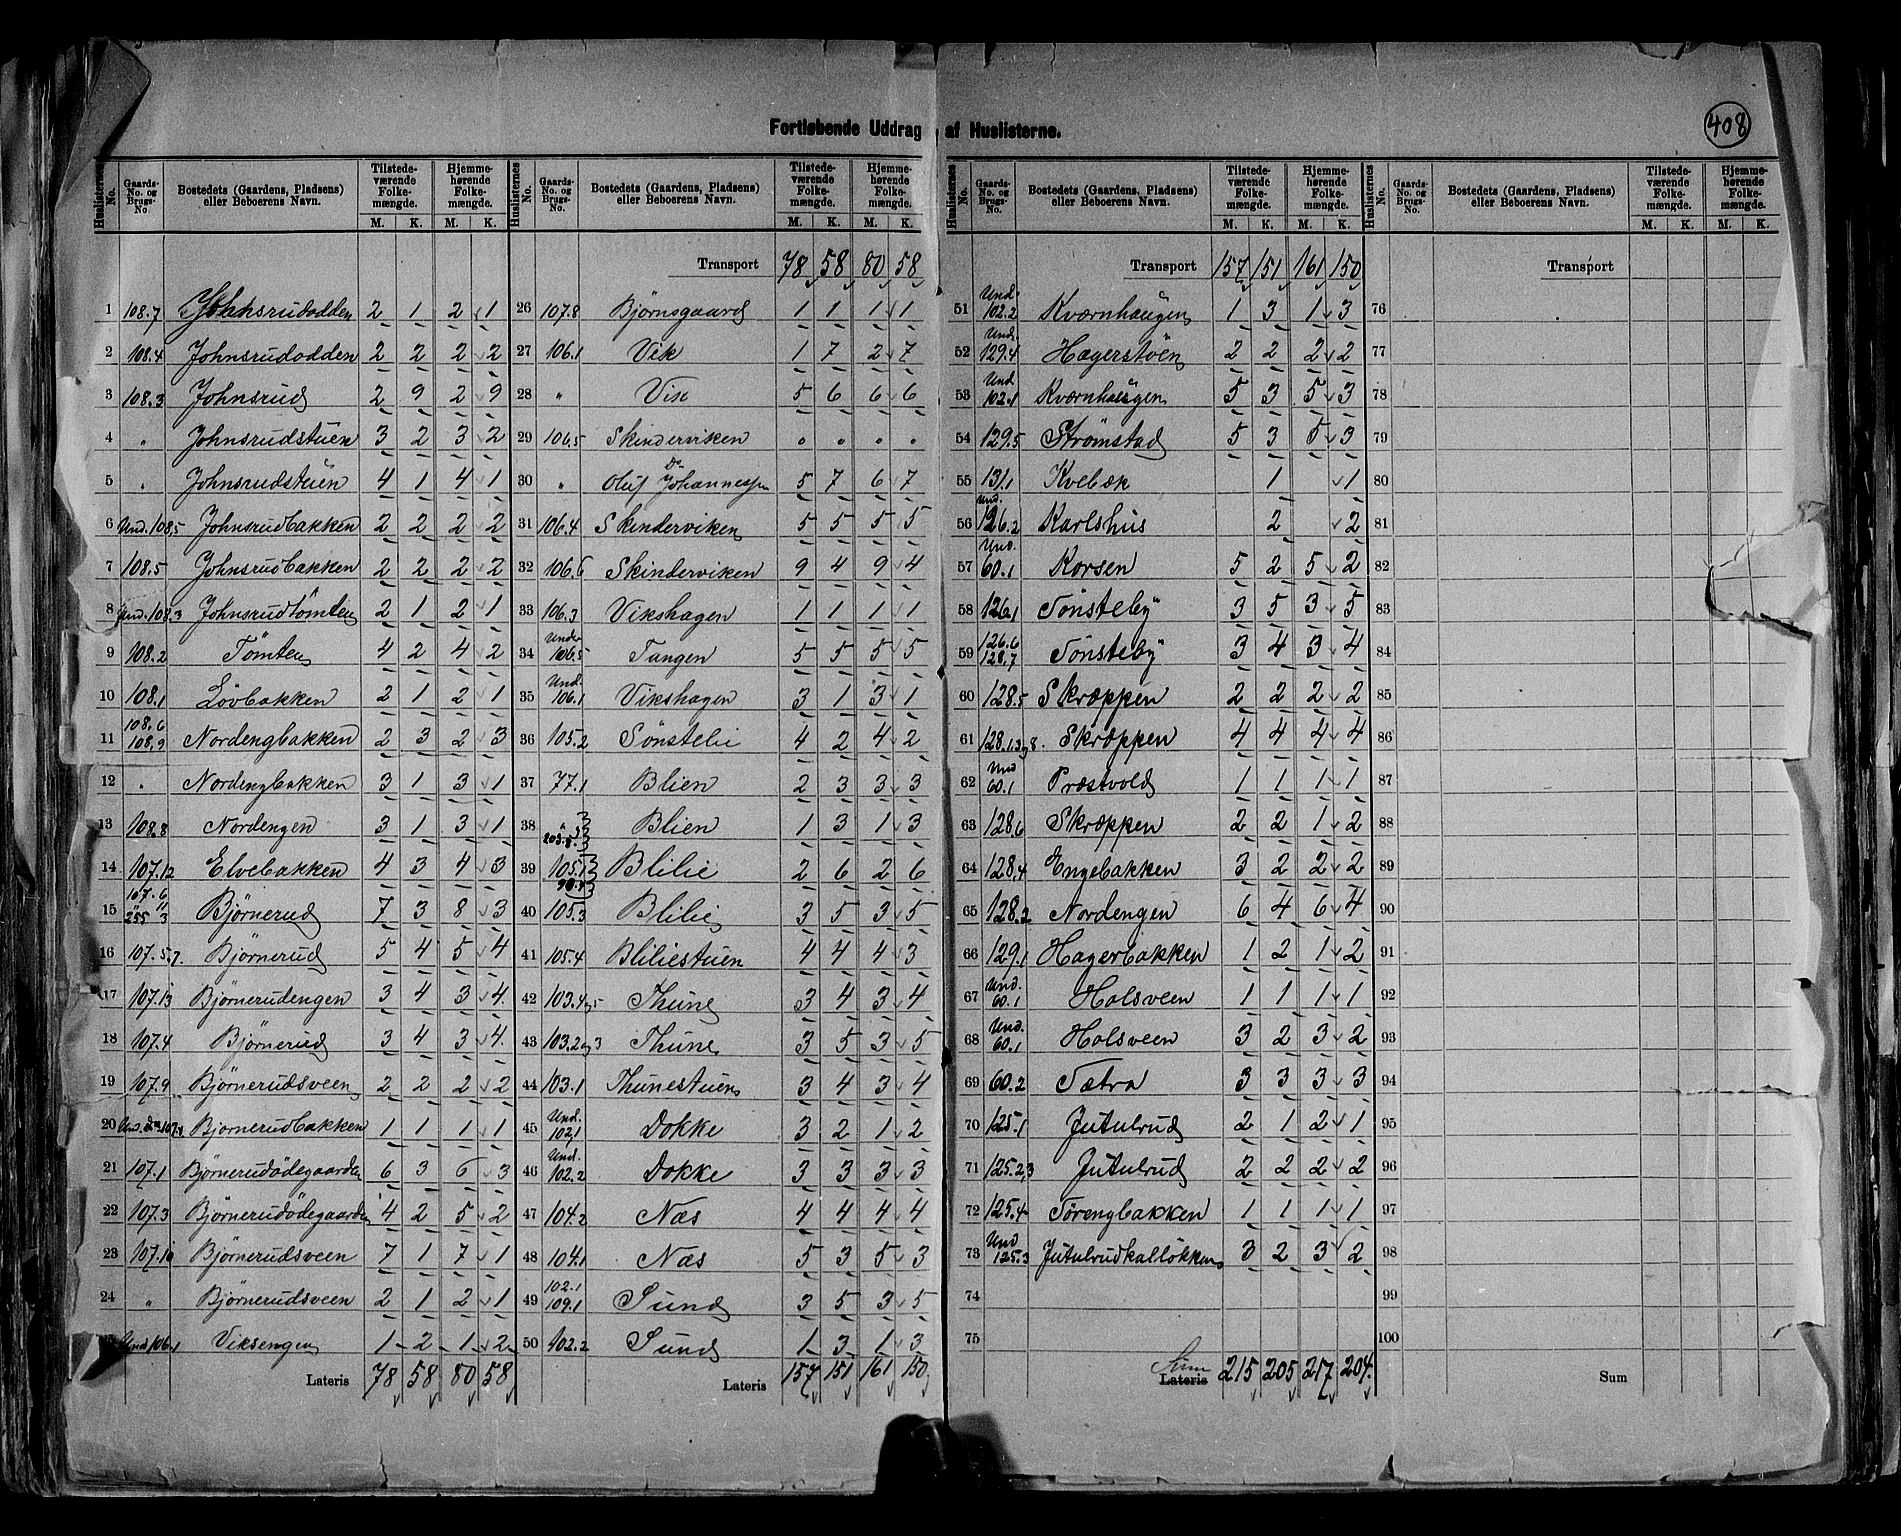 408
Fortløbende Uddrag af Huslisterne.
Huslisternes No. | Gaards-No. og Brugs-No. | Bostedets (Gaardens, Pladsens) eller Beboerens Navn. | Tilstedeværende Folkemængde. M. K. | Hjemmehørende Folkemængde. M. K.
1 108.7 Johnsrudodden 2 1 2 1
2 108.4 Johnsrudodden 2 2 2 2
3 108.3 Johnsrud 2 9 2 9
4 " Johnsrudstuen 3 2 3 2
5 " Johnsrudstuen 4 1 4 1
6 Und. 108,5 Johnsrudbakken 2 2 2 2
7 108.5 Johnsrudbakken 2 2 2 2
8 Und. 108.3 Johnsrudtomten 2 1 2 1
9 108.2 Tomten 4 2 4 2
10 108.1 Lövbakken 2 1 2 1
11 108.6 108.9 Nordengbakken 2 3 2 3
12 " Nordengbakken 3 1 3 1
13 108.8 Nordengen 3 1 3 1
14 107.12 Elvebakken 4 3 4 3
15 107.6 " 11 255 3 Bjørnerud 7 3 8 3
16 107.5.7. Bjørnerud 5 4 5 4
17 107.13 Bjørnerudengen 3 4 3 4
18 107.4 Bjørnerud 3 4 3 4
19 107.9 Bjørnerudsveen 2 2 2 2
20 Bjørnerudbakken 1 1 1 1
21 107.1 Bjørnerudödegaarden 6 3 6 3
22 107.3 Bjørnerudödegaarden 4 2 5 2
23 107.10 Bjørnerudsveen 7 1 7 1
24 " Bjørnerudsveen 2 1 2 1
Und 106.1 Viksengen 1 2 1 2
Lateris 78 58 80 58
Huslisternes No. | Gaards-No. og Brugs-No. | Bostedets (Gaardens, Pladsens) eller Beboerens Navn. | Tilstedeværende Folkemængde. M. K. | Hjemmehørende Folkemængde. M. K.
Transport 78 58 80 58
26 107.8 Bjørnsgaard 1 1 1 1
27 106.1 Vik 1 7 2 7
28 " Vik 5 6 6 6
29 106.5 Skinderviken " " " "
30 " Do Oluf Johannessen 5 7 6 7
31 106.4 Skinderviken 5 5 5 5
32 106.6 Skinderviken 9 4 9 4
33 106.3 Vikshagen 1 1 1 1
34 Under 106.5 Tangen 5 5 5 5
35 Und. 106.1 Vikshagen 3 1 3 1
36 105.2 Sønstebi 4 2 4 2
37 77.1 Blien 2 3 3 3
38 " Blien 1 3 1 3
39 105.1 Blilie 2 6 2 6
40 105.3 Blilie 3 5 3 5
41 105.4 Bliliestuen 4 4 4 3
42 103.4 og 5 Thune 3 4 3 4
43 103.2 og 3 Thune 3 5 3 5
44 103.1 Thunestuen 3 4 3 4
45 Und. 102.1 Dokke 3 2 1 2
46 Und. 102.2 Dokke 3 3 3 3
47 104.2 Næs 4 4 4 4
48 104.1 Næs 5 3 5 3
49 102.1 109.1 Sund 3 5 3 5
50 102.2 Sund 1 3 1 3
Lateris 157 151 161 150
Huslisternes No. | Gaards-No. og Brugs-No. | Bostedets (Gaardens, Pladsens) eller Beboerens Navn. | Tilstedeværende Folkemængde. M. K. | Hjemmehørende Folkemængde. M. K.
Transport 157 151 161 150
51 Und. 102.2 Kværnhaugen 1 3 1 3
52 Und. 129.4 Hagerstøen 2 2 2 2
53 Und 102.1 Kværnhaugen 5 3 5 3
54 129.5 Strømstad 5 3 5 3
55 131.1 Kvebæk 1 1
56 Und. 126.2 Karlshus 2 2
57 Und. 60.1 Korsen 5 2 5 2
58 126.1 Tonsteby 3 5 3 5
59 126.6 128.7 Tonsteby 3 4 3 4
60 128.5 Skræppen 2 2 2 2
61 128.1.3 og 8. Skræppen 4 4 4 4
62 Und 60.1 Præstvold 1 1 1 1
63 128.6 Skræppen 2 2 1 2
64 128.4 Engebakken 3 2 2 2
65 128.2 Nordengen 6 4 6 4
66 129.1 Hagerbakken 1 2 1 2
67 Und. 60.1 Holsveen 1 1 1 1
68 Und. 60.1 Holsveen 3 2 3 2
69 60.2 Sætra 3 3 3 3
70 125.1 Jutulrud 2 1 2 1
71 125.2,3 Jutulrud 2 2 2 2
72 125.4 Törengbakken 1 1 1 1
73 Und 125.3 Jutulrudkalløkken 3 2 3 2
74
75
Sum Lateris 215 205 217 204.
Huslisternes No. | Gaards-No. og Brugs-No. | Bostedets (Gaardens, Pladsens) eller Beboerens Navn. | Tilstedeværende Folkemængde. M. K. | Hjemmehørende Folkemængde. M. K.
Transport
76
77
78
79
80
81
82
83
84
85
86
87
88
89
90
91
92
93
94
95
96
97
98
99
100
Sum